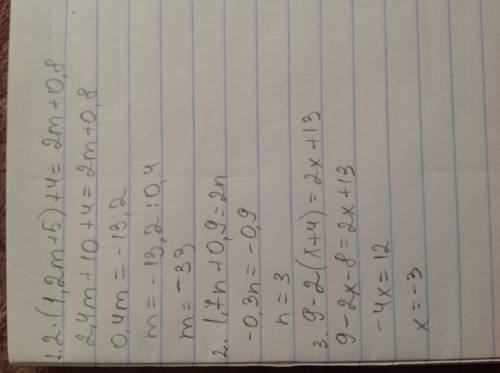 1. 2·(1,2m+5)+4=2m+0,8
2,4m+10+4=2m+0,8
0,4m=-13,2
m=-13,2:0,4
m=-33
2. 1,7n+0,9=2n
-0,3n=-0,9
n=3
3. 9-2(x+4)=2x+13
9-2x-8=2x+13
-4x=12
x=-3